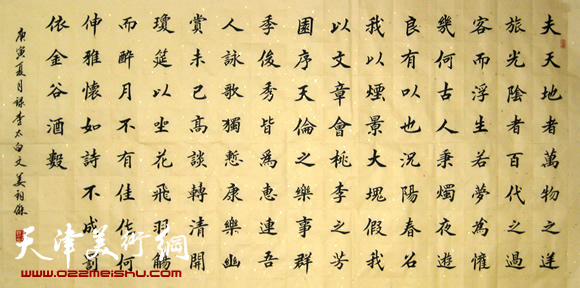 夫天地者萬物之逆
旅光陰者百代之過
客而浮生若夢為懽
幾何古人秉燭夜遊
良有以也況陽春召
我以煙景大塊假我
以文章會桃李之芳
園序天倫之樂事群
季俊秀皆為惠連吾
人詠歌獨慙康樂幽
賞未已高談轉清開
瓊筵以坐花飛羽觴
而醉月不有佳作何
伸雅懷如詩不成罰
依金谷酒數
庚寅夏月錄李太白文姜
天津美術網
www.ozzmeishu.com